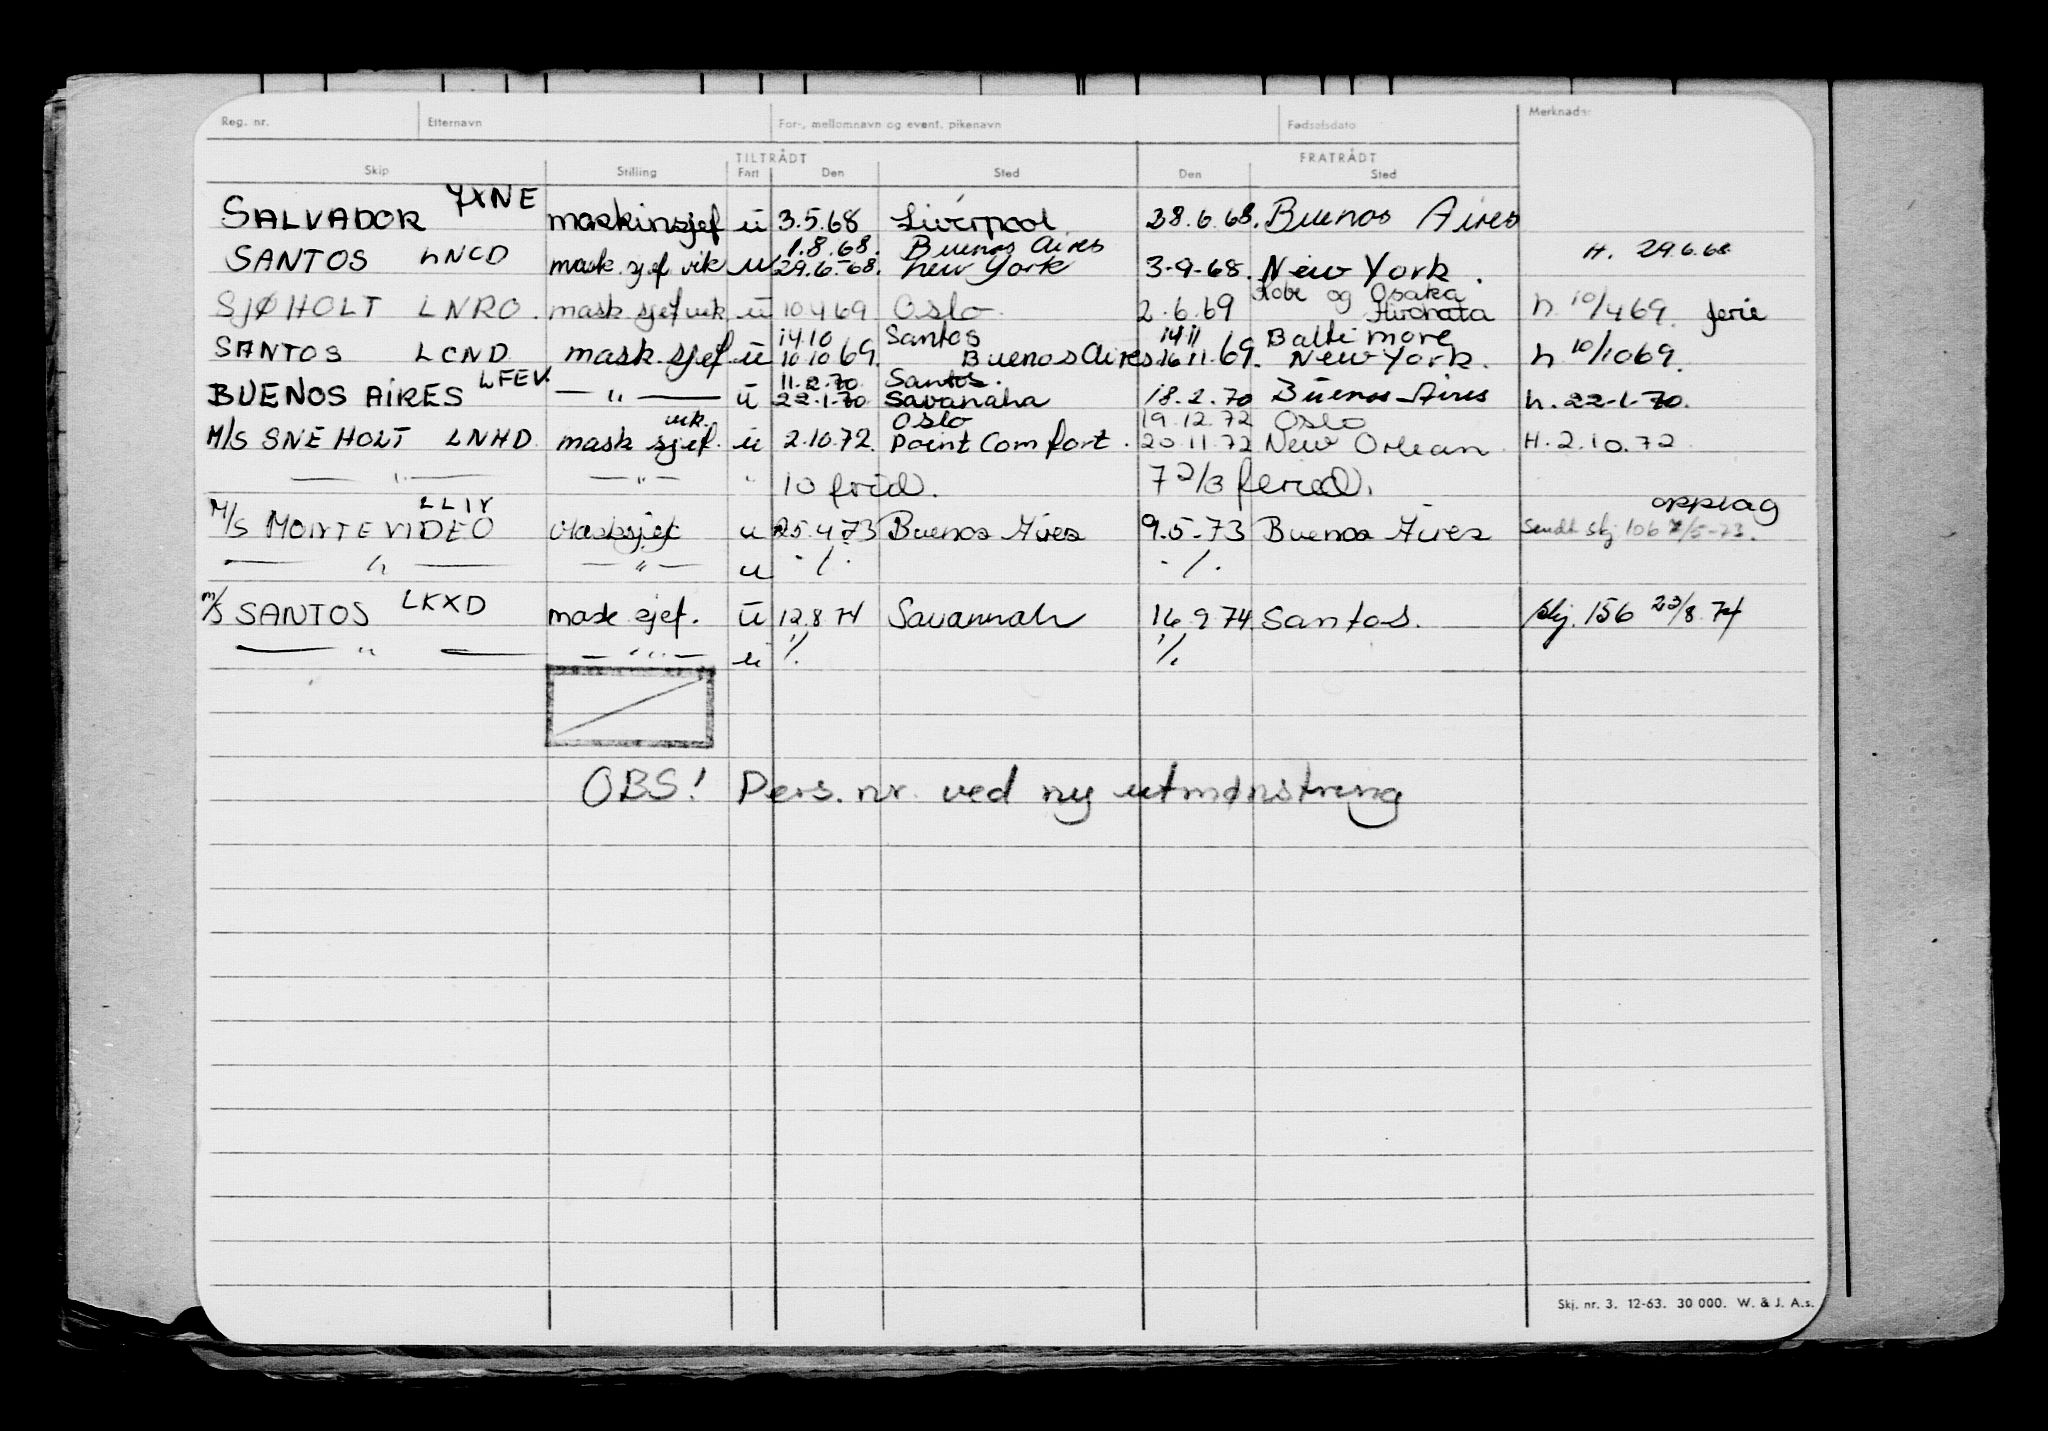 Reg. nr. Etternavn For-, mellomnavn og event. pikenavn Fødselsdato Merknads:
TILTRÅDT FRATRÅDT
Skip Stilling Fart Den Sted Den Sted
SALVADOR JXNE maskinsjef u 3.5.68 Liverpool 28.6.68. Buenos Aires
1.8.68. Buenos Aires
SANTOS LNCD mask. sjef vik u 29.6.68. New York 3-9-68. New York. H. 29.6.68
Kobe og Osaka
SJØHOLT LNRO. mask sjef vik u 10 4 69 Oslo 2.6.69 Hirohata h 10/4 69. ferie
14.10 Santos 14 11 Baltimore
SANTOS LCND mask. sjef u 10 10 69. Buenos Aires 16 11. 69. New York. h 10/10 69.
11.2.70 Santos.
BUENOS AIRES LFEV. — " — u 22-1-70 Savanaha 18.2.70 Buenos Aires h. 22-1-70.
vik. Oslo 19.12.72 Oslo
M/S SNEHOLT LNHD mask sjef. u 2.10.72. Point Comfort. 20 11 72 New Orlean H. 2.10.72
— " — — " — " 10 frid. 7 2/3 feried.
LLIV opplag
M/S MONTEVIDEO Masksjef u 25.4.73 Buenos Aires 9.5.73 Buenos Aires Sendt skj 106 /5-73.
— " — — " — u . / . . / .
m/s SANTOS LKXD mask sjef. u 12.8 74 Savannah 16.9 74 Santos. skj. 156 23/8. 74
— " — — " — u ./. ./.
OBS! Pers. nr. ved ny utmønstring
Skj. nr. 3. 12-63. 30 000. W. & J. A.s.